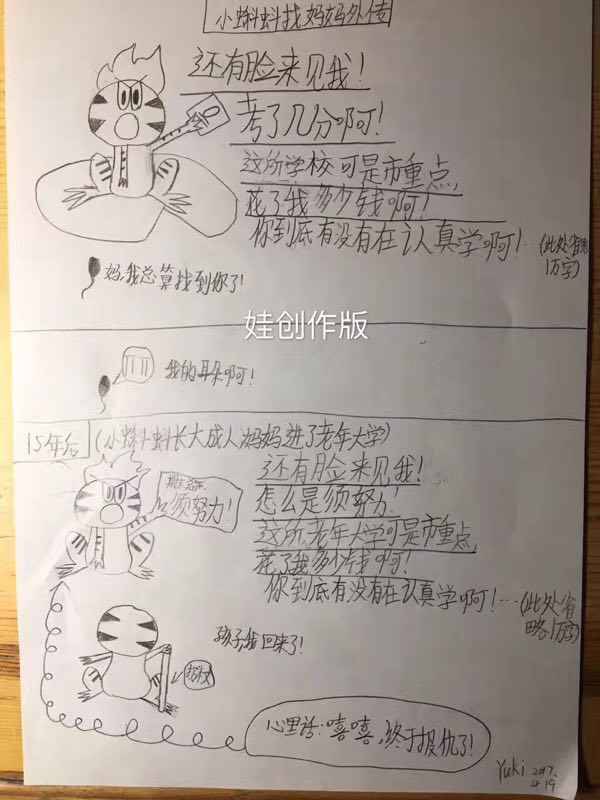 小蝌蚪找妈妈外传
还有脸来见我!
考了几分啊!
0
这所学校可是市重点,
花了我多少钱啊!
你到底有没有在认真学啊!…(此处省略
1万字)
妈,我总算找到你了!
娃创作版
我的耳朵啊!
15年后 (小蝌蚪长大成人妈妈进了老年大学)
还有脸来见我!
须努力!
怎么是须努力!
这所老年大学可是市重点,
花了我多少钱啊!
你到底有没有在认真学啊!…(此处省
略1万字)
孩子,我回来了!
拐杖
心里话:嘻嘻,终于报仇了!
Yuki 2017.
4.19